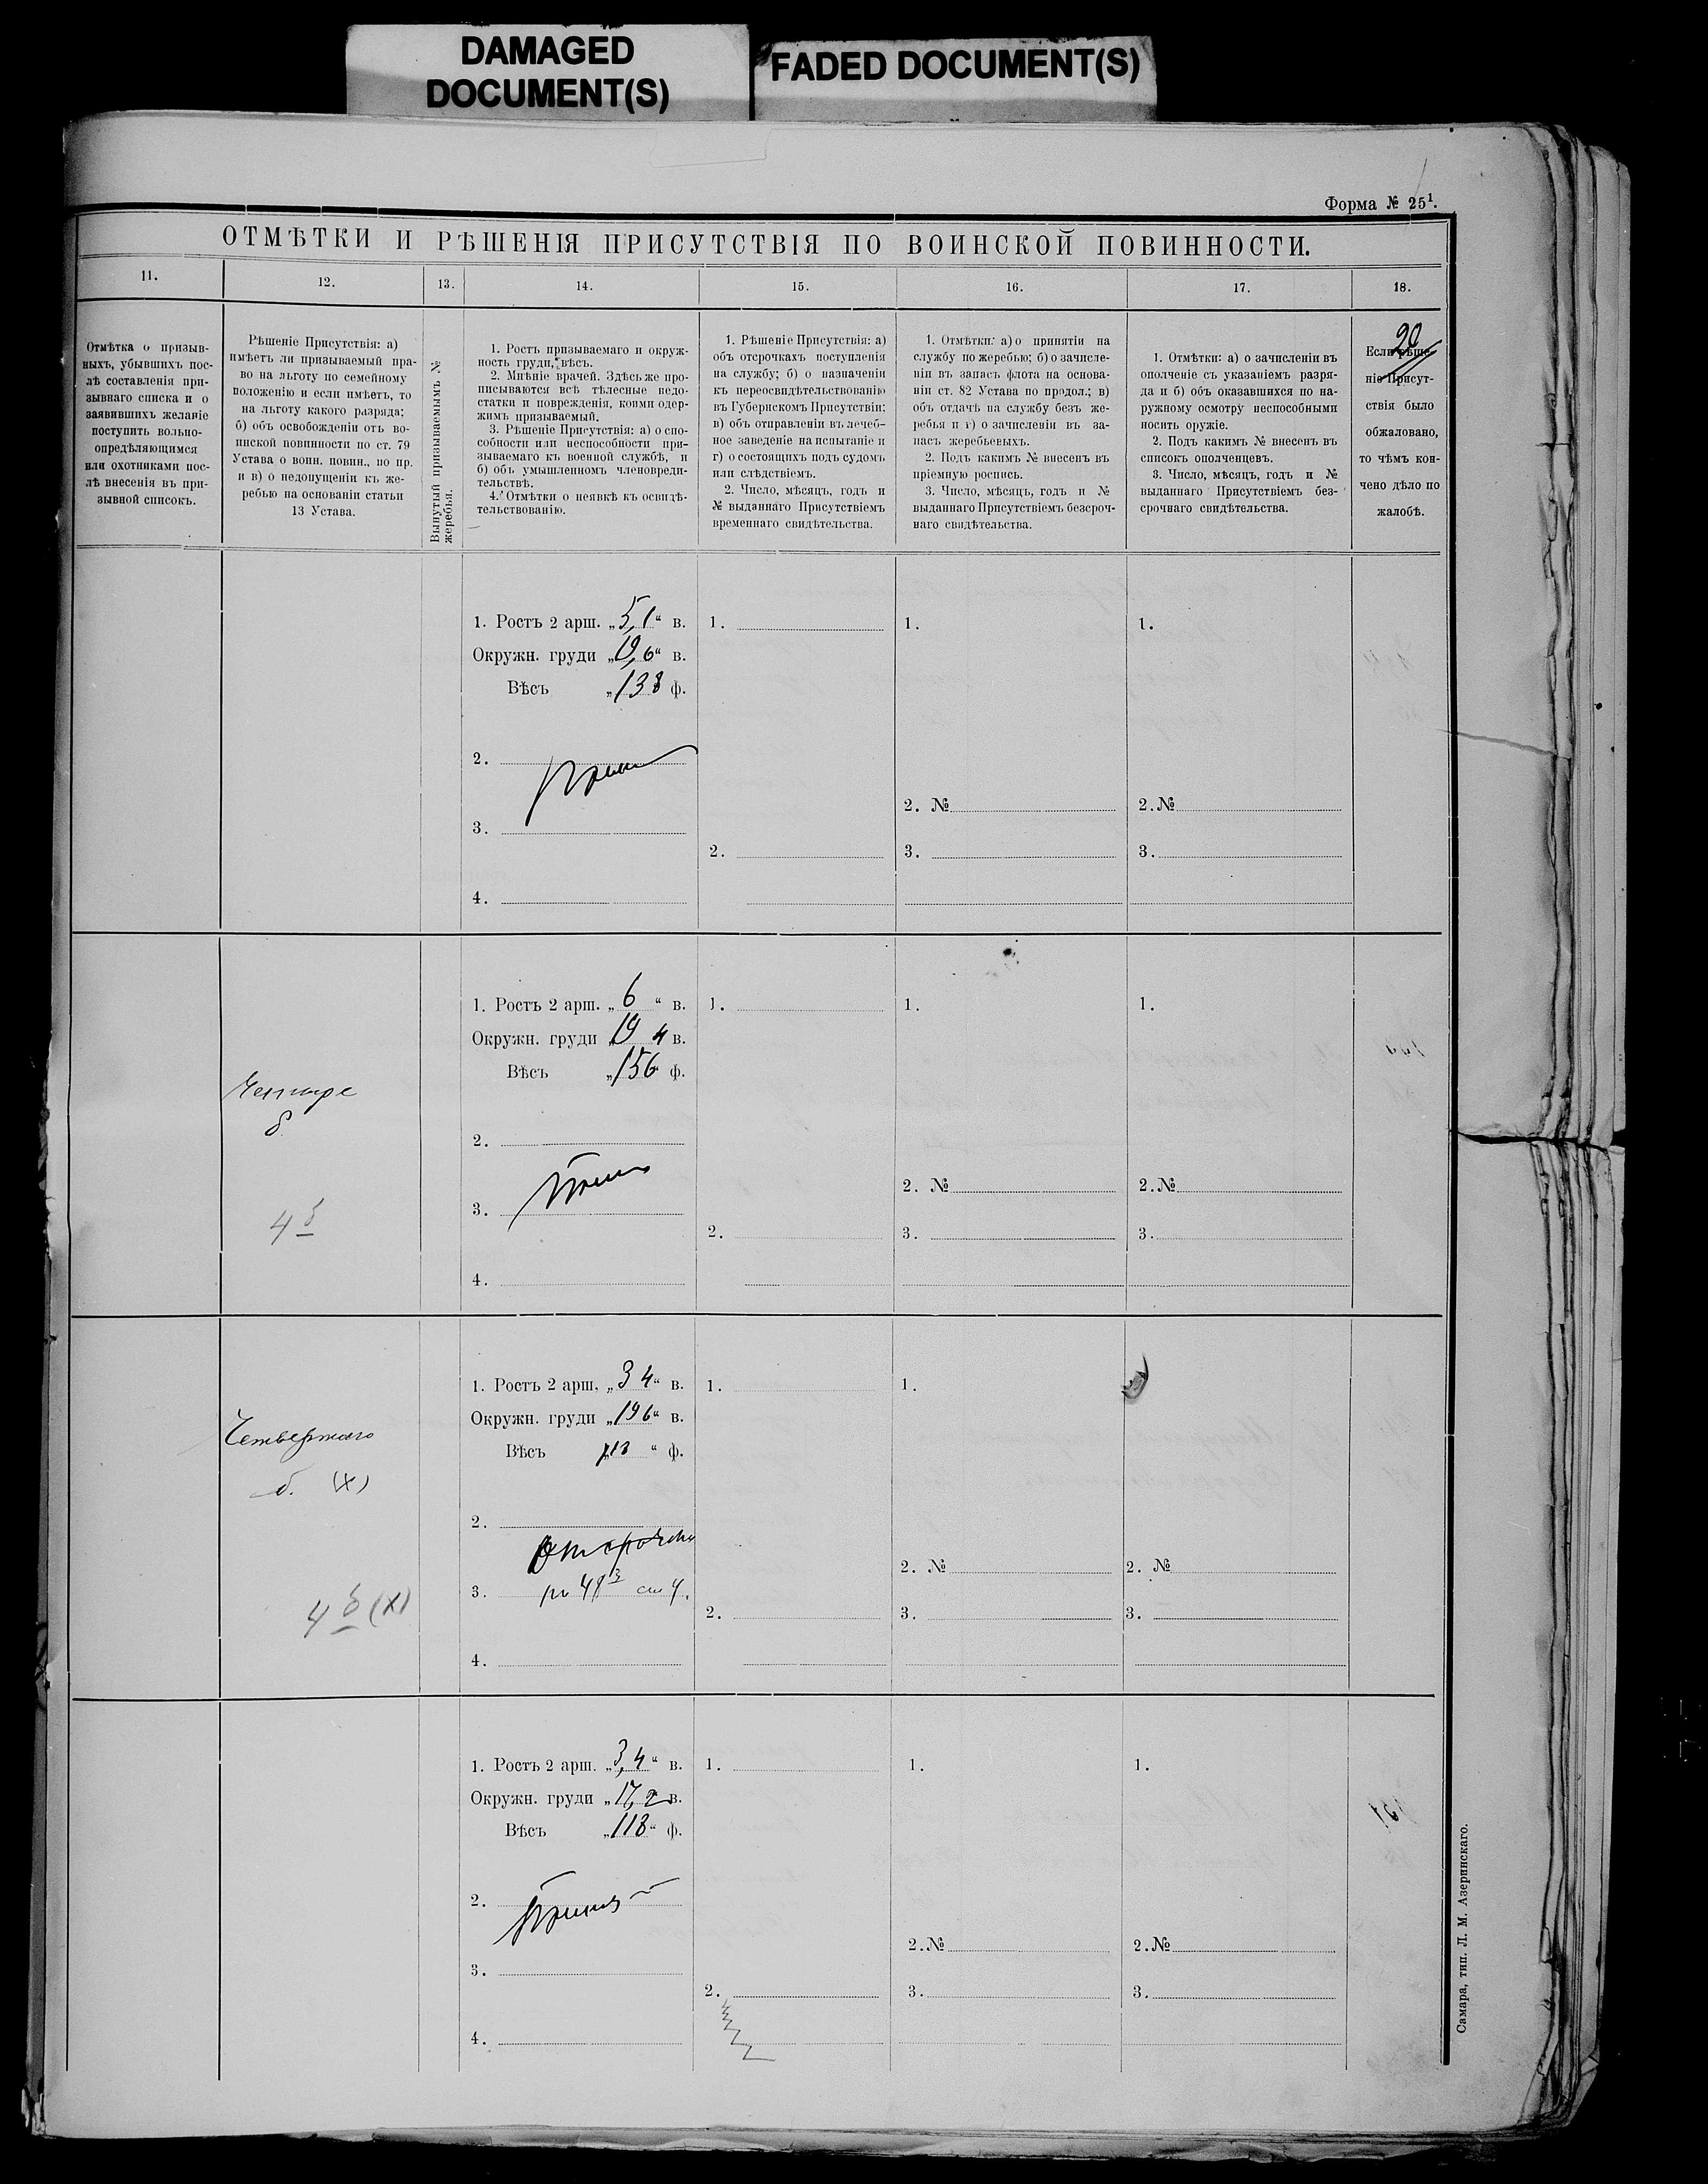 DAMAGED
DOCUMENT(S)
FADED DOCUMENT(S)
Форма № 25¹.
ОТМѢТКИ И РѢШЕНІЯ ПРИСУТСТВІЯ ПО ВОИНСКОЙ ПОВИННОСТИ.
11.
12.
13.
14.
15.
16.
17.
18.
Отмѣтка о призыв-
ныхъ, убывшихъ пос-
лѣ составленія при-
зывнаго списка и о
заявившихъ желаніе
поступить вольно-
опредѣляющимся
или охотниками пос-
лѣ внесенія въ при-
зывной списокъ.
Рѣшеніе Присутствія: а)
имѣетъ ли призываемый пра-
во на льготу по семейному
положенію и если имѣетъ, то
на льготу какого разряда;
б) объ освобожденіи отъ во-
инской повинности по ст. 79
Устава о воин. повин., по пр.
и в) о недопущеніи къ же-
ребью на основаніи статьи
13 Устава.
Вынутый призываемымъ №
жеребья.
1. Ростъ призываемаго и окруж-
ность груди, вѣсъ.
2. Мнѣніе врачей. Здѣсь же про-
писываются всѣ тѣлесные недо-
статки и поврежденія, коими одер-
жимъ призываемый.
3. Рѣшеніе Присутствія: а) о спо-
собности или неспособности при-
зываемаго къ военной службѣ, и
б) объ умышленномъ членовреди-
тельствѣ.
4. Отмѣтки о неявкѣ къ освидѣ-
тельствованію.
1. Рѣшеніе Присутствія: а)
объ отсрочкахъ поступленія
на службу; б) о назначеніи
къ переосвидѣтельствованію
въ Губернскомъ Присутствіи;
в) объ отправленіи въ лечеб-
ное заведеніе на испытаніе и
г) о состоящихъ подъ судомъ
или слѣдствіемъ.
2. Число, мѣсяцъ, годъ и
№ выданнаго Присутствіемъ
временнаго свидѣтельства.
1. Отмѣтки: а) о принятіи на
службу по жеребью; б) о зачисле-
ніи въ запасъ флота на основа-
ніи ст. 82 Устава по продол.; в)
объ отдачѣ на службу безъ же-
ребья и г) о зачисленіи въ за-
пасъ жеребьевыхъ.
2. Подъ какимъ № внесенъ въ
пріемную роспись.
3. Число, мѣсяцъ, годъ и №
выданнаго Присутствіемъ безсроч-
наго свидѣтельства.
1. Отмѣтки: а) о зачисленіи въ
ополченіе съ указаніемъ разря-
да и б) объ оказавшихся по на-
ружному осмотру неспособными
носить оружіе.
2. Подъ какимъ № внесенъ въ
списокъ ополченцевъ.
3. Число, мѣсяцъ, годъ и №
выданнаго Присутствіемъ без-
срочнаго свидѣтельства.
20
Если рѣше-
ніе Присут-
ствія было
обжаловано,
то чѣмъ кон-
чено дѣло по
жалобѣ.
1. Ростъ 2 арш. „5,1“ в.
Окружн. груди „19,6“ в.
Вѣсъ „138 ф.
2.
3.
4.
1.
2.
1.
2. №
3.
1.
2. №
3.
Четыре
б
4 б
1. Ростъ 2 арш. „6“ в.
Окружн. груди „19 4 в.
Вѣсъ „156 ф.
2.
3.
4.
1.
2.
1.
2. №
3.
1.
2. №
3.
Четвертаго
б. (х)
4 б (х)
1. Ростъ 2 арш. „3 4“ в.
Окружн. груди „19 6“ в.
Вѣсъ „113“ ф.
2.
Отсрочка
3. по 48 ст 4.
4.
1.
2.
1.
2. №
3.
2. №
3.
1. Ростъ 2 арш. „3,4“ в.
Окружн. груди „17,2 в.
Вѣсъ „118“ ф.
2. Принят
3.
4.
1.
2.
1.
2. №
3.
1.
2. №
3.
Самара, тип. Л. М. Азеринскаго.